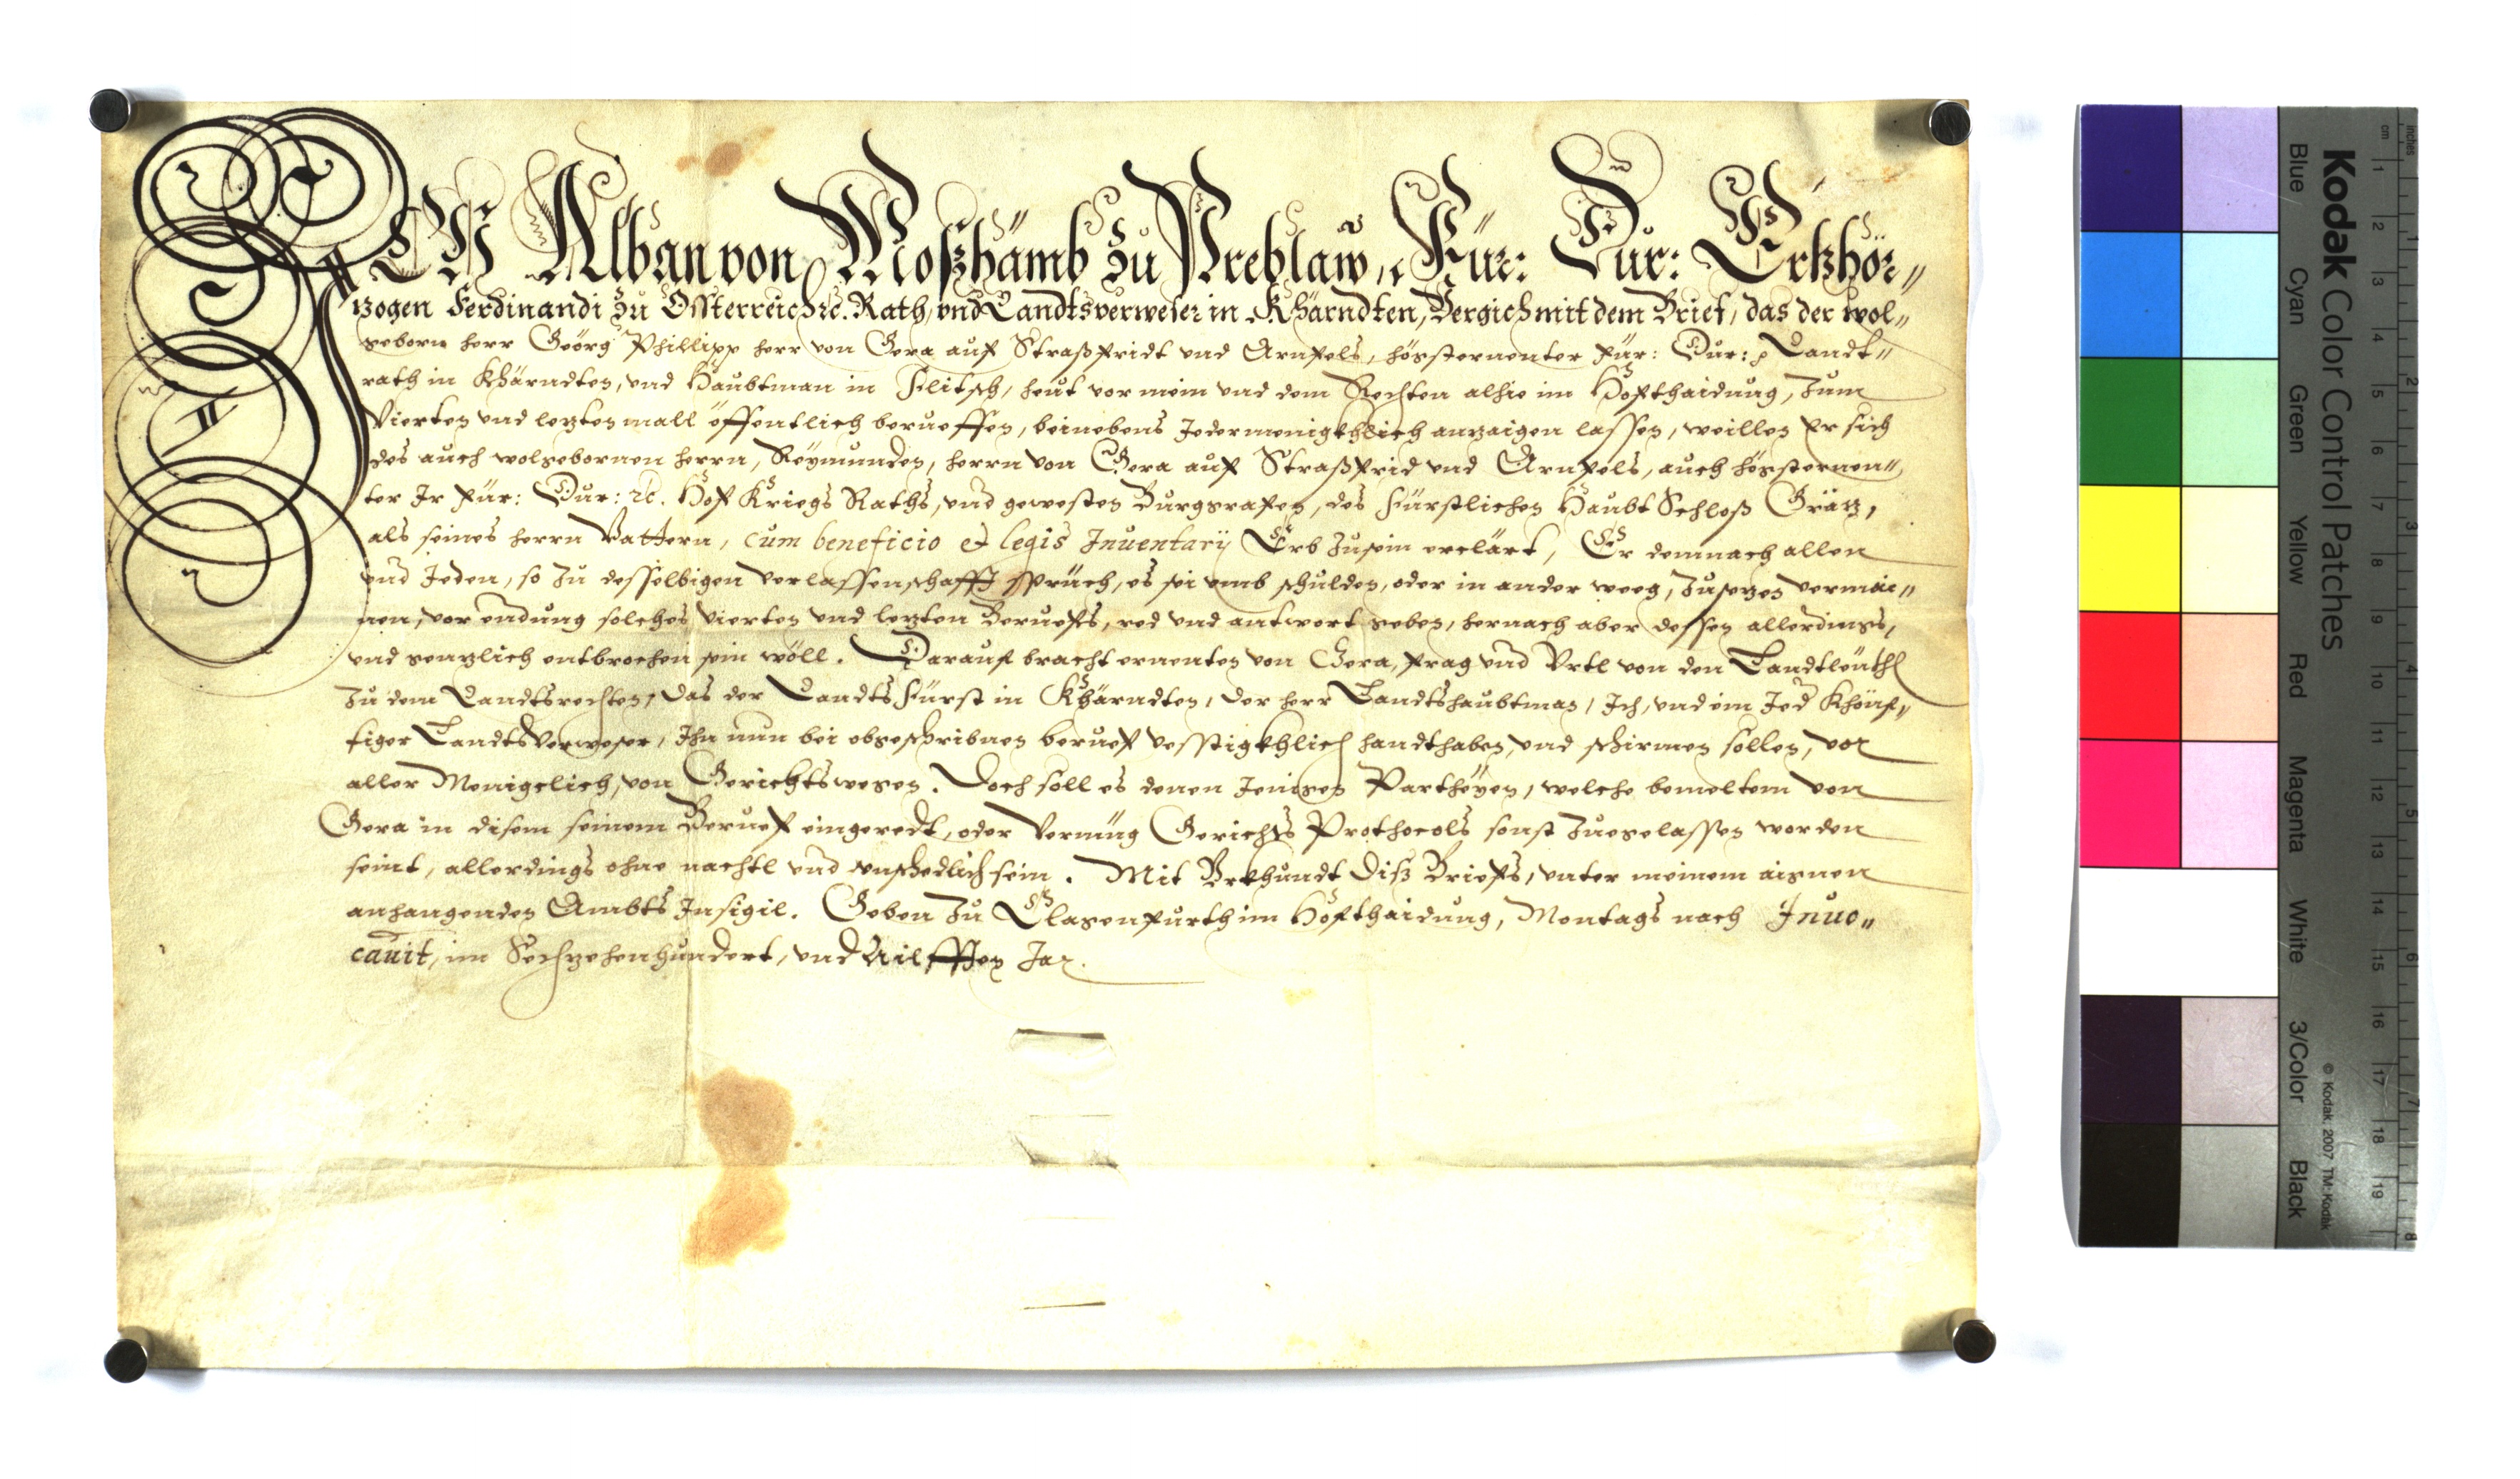 ICH Alban von Moßhämb zu Preblaw, Für: Dur: Ertzhör„
tzogen Ferdinandi zu Össterreich etc. Rath, vnd Landtsverweser in Khärndten, Vergich mit dem Brief, das der wol„
geborn herr Geörg Phillipp herr von Gera auf Straßfridt vnd Arnfels, höstternenter Für: Dur: Landt„
rath in Khärndten, vnd Haubtman in Flitsch, heut vor mein vnd dem Rechten alhie im Hofthaidung, zum
Vierten vnd letzten mall öffentlich berueffen, beinebens Jedermenigkhlich anzaigen lassen, weillen Er sich
des auch wolgebornen herrn, Reÿmunden, herrn von Gera auf Straßfrid vnd Arnfels, auch hösternen„
ter Ir Für: Dur: etc. Hof Kriegs Raths, vnd gewesten Burggrafen, des Fürstlichen Haubt Schloß Grätz,
als seines herrn Vattern, cum beneficio et legis Inuentarij Erb zusein erclärt, Er demnach allen
vnd Jeden, so zu desselbigen verlassenschafft sprüch, es sei vmb schulden, oder in ander weeg, zusetzen vermai„
nen, vor endung solches vierten vnd letzten Beruefs, red vnd antwort geben, hernach aber dessen allerdings,
vnd gentzlich entbrochen sein wöll. Darauf bracht ernenten von Gera, frag vnd Vrtl von den Landtleuth
zu dem Landtsrechten, das der Landts Fürst in Khärndten, der herr Landtshaubtman, Ich, vnd ein Jed Khönf„
tiger Landts Verweser, Ihn nun bei obgeschribnen beruef vesstigkhlich handthaben, vnd schirmen sollen, vor
aller Menigelich, von Gerichts wegen. Doch soll es denen Jenigen Partheÿen, welche bemeltem von
Gera in disem seinem Beruef eingeredt, oder Vermüg Gerichts Prothocols sonst zuegelassen worden
seint, allerdings ohne nachtl vnd vnschedlich sein. Mit Vrkhundt diß Briefs, vnter meinem aignen
anhangenden Ambts Insigil. Geben zu Clagenfurth im Hofthaidung, Montags nach Inuo„
cauit, im Sechzehenhundert, vnd Ailfften Jar.
Kodak Color Control Patches
Blue Cyan Green Yellow Red Magenta White 3/Color Black
© Kodak, 2007 TM: Kodak
cm 1 2 3 4 5 6 7 8 9 10 11 12 13 14 15 16 17 18 19
inches 1 2 3 4 5 6 7 8